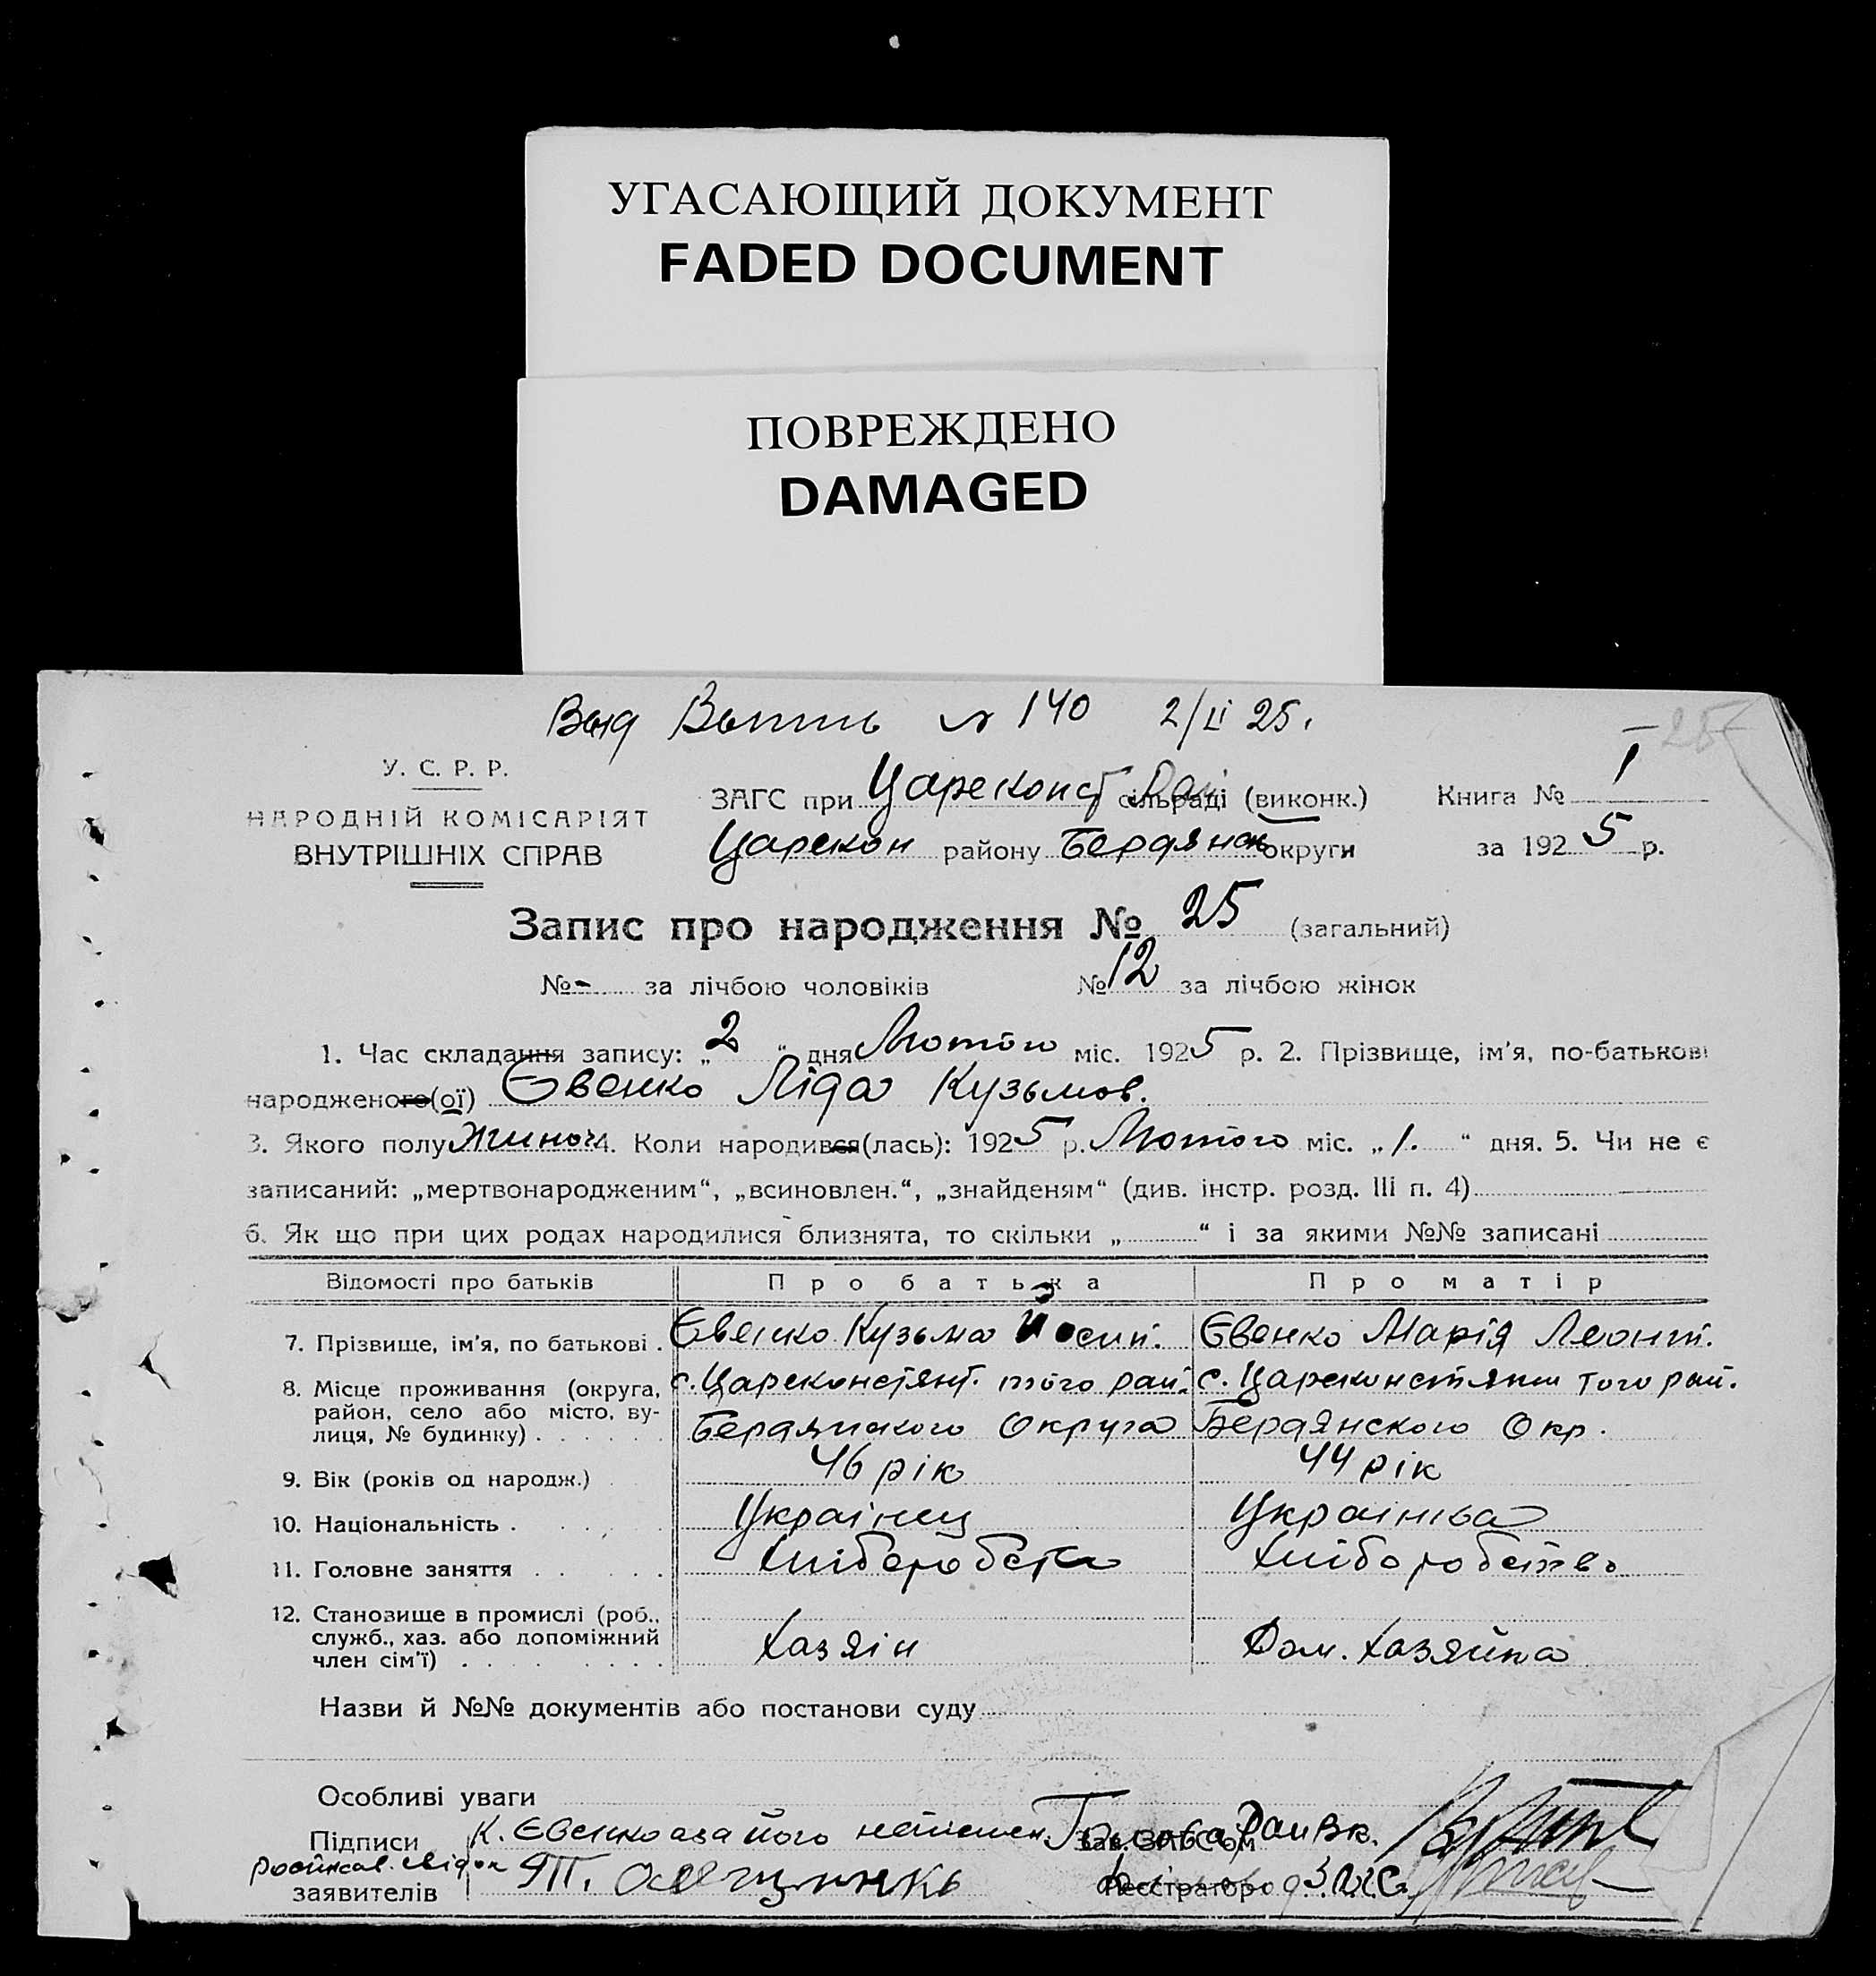 УГАСАЮЩИЙ ДОКУМЕНТ
FADED DOCUMENT
ПОВРЕЖДЕНО
DAMAGED
Выд № 140 2/II 25.
У. С. Р. Р.
НАРОДНІЙ КОМІСАРІЯТ
ВНУТРІШНІХ СПРАВ
ЗАГС при Цареконст Рай сільраді (виконк.)
Царекон району Бердянськ округи
Книга № 1
за 1925 р.
Запис про народження № 25 (загальний)
№ - за лічбою чоловіків № 12 за лічбою жінок
1. Час складання запису: „2“ дня Лютого міс. 1925 р. 2. Прізвище, ім'я, по-батькові
народженого(ої) Євенко Ліда Кузьмов.
3. Якого полу Жиноч 4. Коли народився(лась): 1925 р. Лютого міс. „1.“ дня. 5. Чи не є
записаний: „мертвонародженим“, „всиновлен.“, „знайденям“ (див. інстр. розд. III п. 4)
6. Як що при цих родах народилися близнята, то скільки „ “ і за якими №№ записані
Відомості про батьків Про батька Про матір
7. Прізвище, ім'я, по батькові . Євенко Кузьма Йосип. Євенко Марія Леонт.
8. Місце проживання (округа, с. Цареконстянт. того рай. с. Цареконстянти того рай.
район, село або місто, ву-
лиця, № будинку) . . . . . . Бердянського Округа Бердянского Окр.
9. Вік (років од народж.) 46 рік 44 рік
10. Національність . . . . . Українец Українка
11. Головне заняття . . . . . Хліборобство Хліборобство
12. Становище в промислі (роб.,
служб., хаз. або допоміжний
член сім'ї) . . . . . . . . Хазяін Дом. Хазяйка
Назви й №№ документів або постанови суду
Особливі уваги
Підписи К. Євенко а за його неписьмен. Голова Райвк.
Зав. ЗАГС'ом
заявителів
Реєстратор